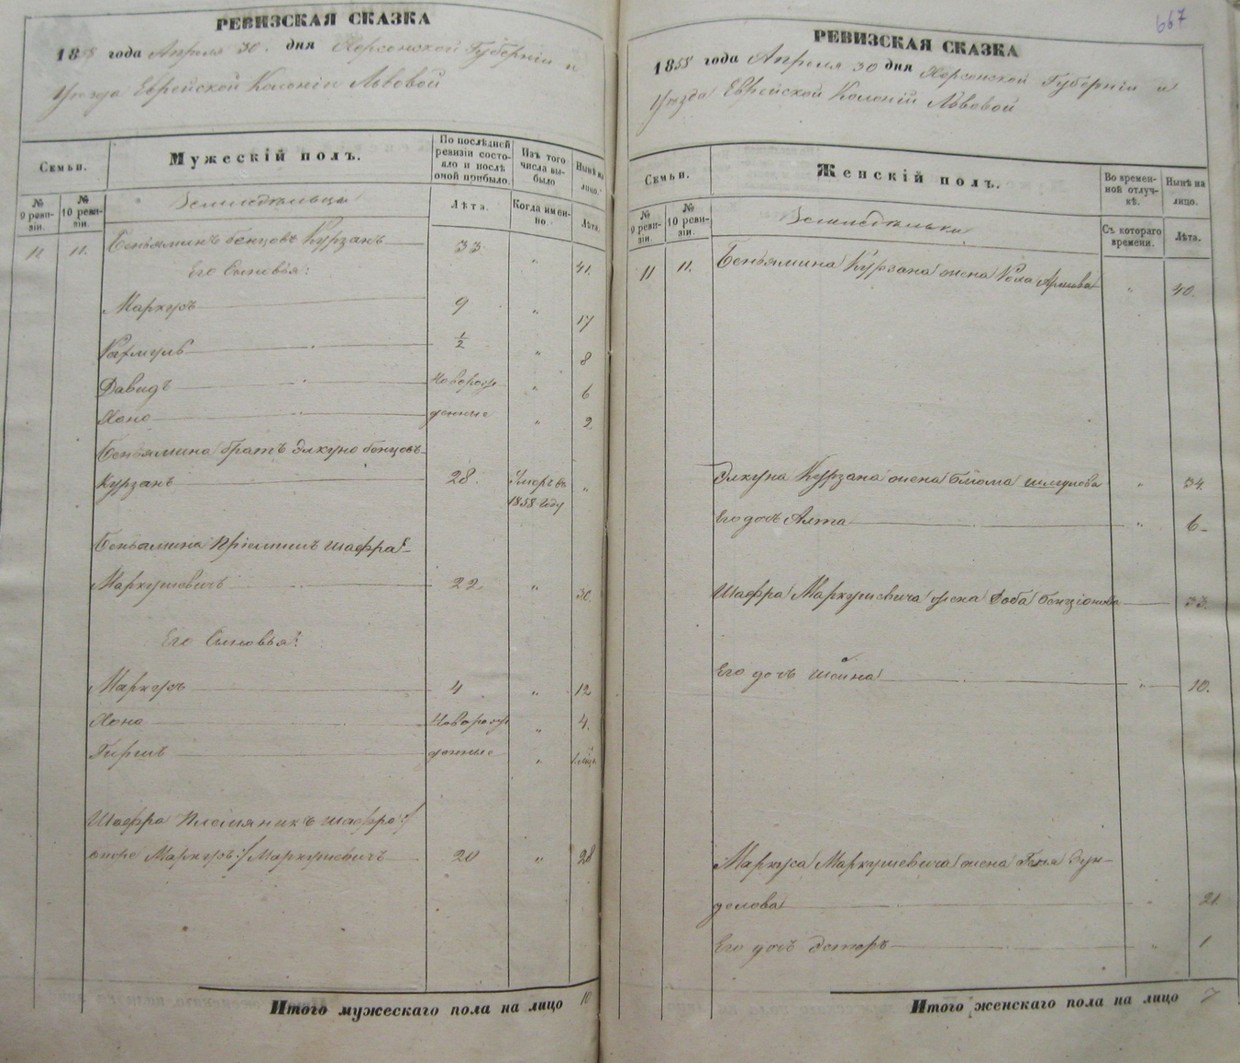 РЕВИЗСКАЯ СКАЗКА
1858 года Апреля 30. дня Херсонской Губерніи и
Уѣзда Еврейской Колоніи Львовой
Семьи.
Мужескій полъ.
По послѣдней ревизіи состояло и послѣ оной прибыло.
Изъ того числа выбыло
Нынѣ на лицо.
№ 9 ревизіи.
№ 10 ревизіи.
Земледѣльцы
Лѣта.
Когда именно.
Лѣта.
11 11. Беньяминъ Бенцовъ Курзанъ 33 " 41.
Его Сыновья:
Маркусъ 9 " 17
½ " 8
Давидъ новорож " 6
Хоно денные " 2
Беньямина братъ Элкуно Бенцовъ
Курзанъ 28. Умеръ въ 1858 году "
Беньямина Пріемышъ Шафра
Маркушевичъ 22 " 30.
Его Сыновья:
Маркусъ 4 " 12
Хоно Новорож " 4.
Гиршъ денные "
Шафра Племяникъ Шафра
Маркусъ Маркушевичъ 20 " 28
Итого мужескаго пола на лицо 10
667
РЕВИЗСКАЯ СКАЗКА
1858 года Апреля 30 дня Херсонской Губерніи и
Уѣзда Еврейской Колоніи Львовой
Семьи.
Женскій полъ.
Во временной отлучкѣ.
Нынѣ на лицо.
№ 9 ревизіи.
№ 10 ревизіи.
Земледѣльки
Съ котораго времени.
Лѣта.
11 11. Беньямина Курзана жена " 40.
Элкуна Курзана жена Блюма Шмулева " 34.
Его дочь Алта " 6
Шафра Маркушевича жена Боба Бенціонова 33.
Его дочь Шейна " 10.
Маркуса Маркушевича жена Геня
" 21
Его дочь Эстеръ " 1
Итого женскаго пола на лицо 7